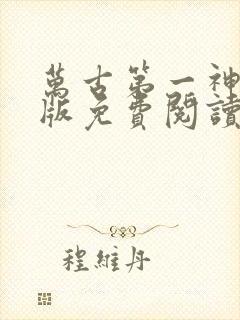 萬古第一神
版免費閱讀
程維丹